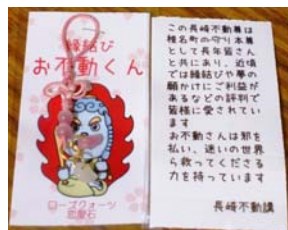 縁結び
お不動くん
ローズクォーツ
恋愛石
この長崎不動尊は
椎名町の守り本尊
として長年皆さん
と共にあり、近頃
では縁結びや夢の
願かけにご利益が
あるなどの評判で
皆様に愛されてい
ます
お不動さんは邪を
払い、迷いの世界
ら救ってくださる
力を持っています
長崎不動講